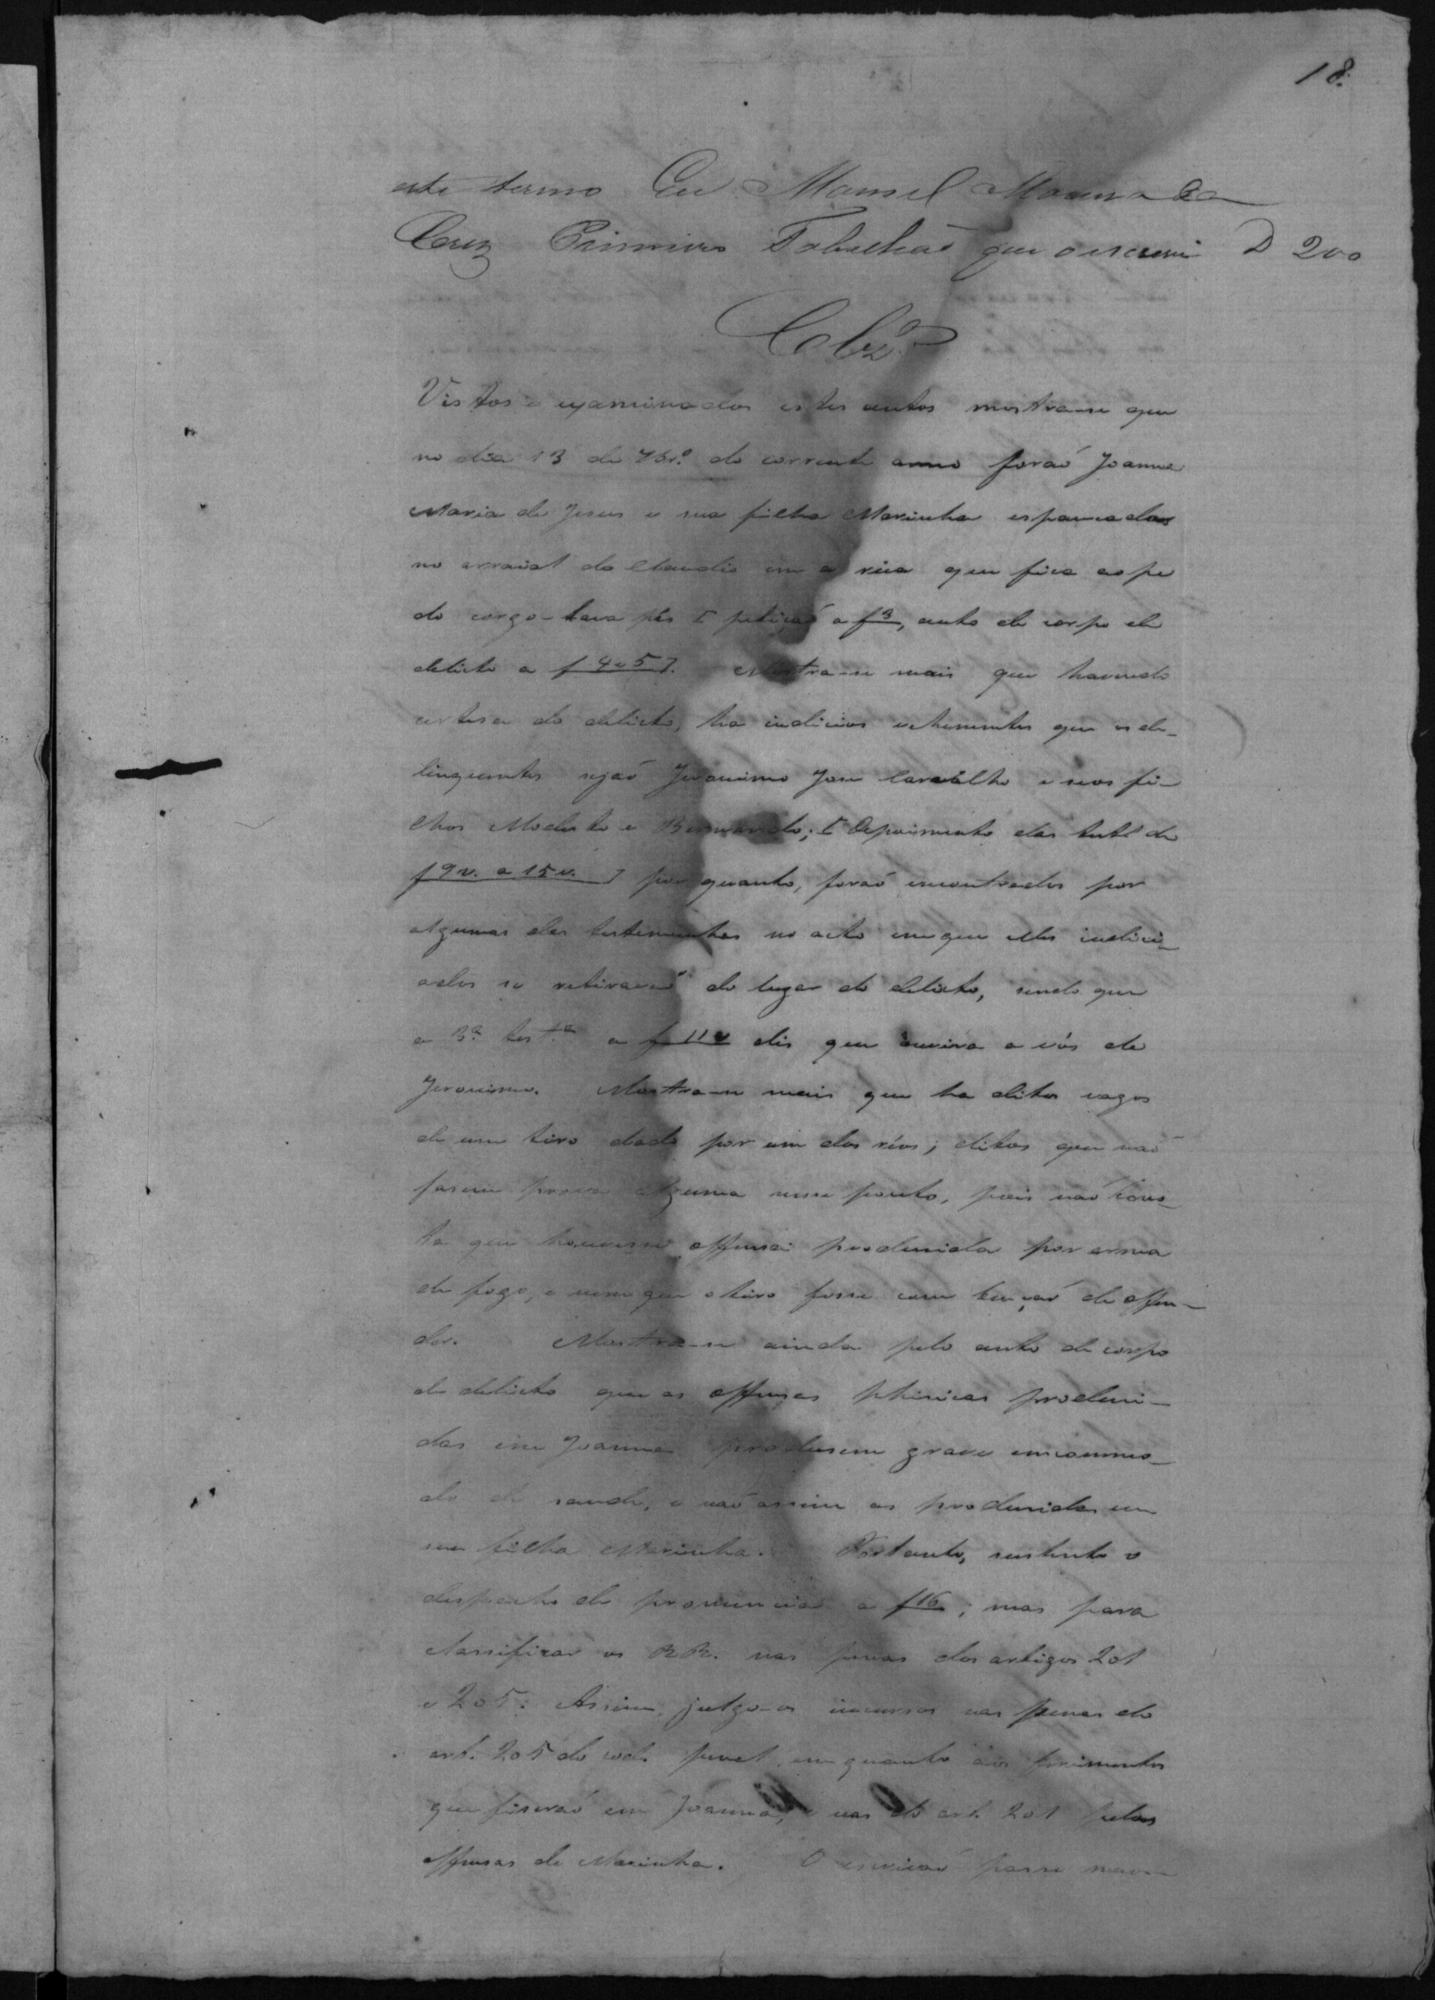 18.
este termo Eu Manoel Moreira da
Cruz Primeiro Tabelliaõ que o escrevi D 200
Clz.os
Vistos e examinados estes autos mostra-se que
no dia 13 de 7br.o do corrente anno foraõ Joanna
Maria de Jesus e sua filha Marinha espancadas
no arraial do Claudio em a rua que fica ao pe
do corgo-lava pés [petiçaõ a f 3, auto de corpo de
delicto a f 4 e 5]. Mostra-se mais que havendo
certesa do delicto, ha indicios vehementes que os de-
linquentes sejaõ Jeronimo Jose Carvalho e seos fi-
lhos Modesto e Bernardo; [Depoimento das test.s de
f 9 v. a 15 v. ] por quanto, foraõ encontrados por
algumas das testemunhas no acto em que elles indici-
ados se retiravaõ do lugar do delicto, sendo que
a 3.a test.a a f 11 v dis que ouvira a vós de
Jeronimo. Mostra-se mais que ha ditos vagos
de um tiro dado por um dos réos; ditos que naõ
fasem prova alguma nesse ponto, pois naõ cons-
ta que houvesse offensa produsida por arma
de fogo, e nem que o tiro fosse com tençaõ de offen-
der. Mostra-se ainda pelo auto de corpo
de delicto que as offensas phisicas produsi-
das em Joanna produsem grave encommo-
do de saude, e naõ assim as produsidas em
sua filha Marinha. Portanto, sustento o
despacho de pronuncia a f 16; mas para
classificar os RR. nas penas dos artigos 201
e 205. Assim, julgo-os incursos nas penas do
art. 205 do cod. penal em quanto aos ferimentos
que fiseraõ em Joanna, e nas do art. 201 pelas
offensas de Marinha. O escrivaõ passe